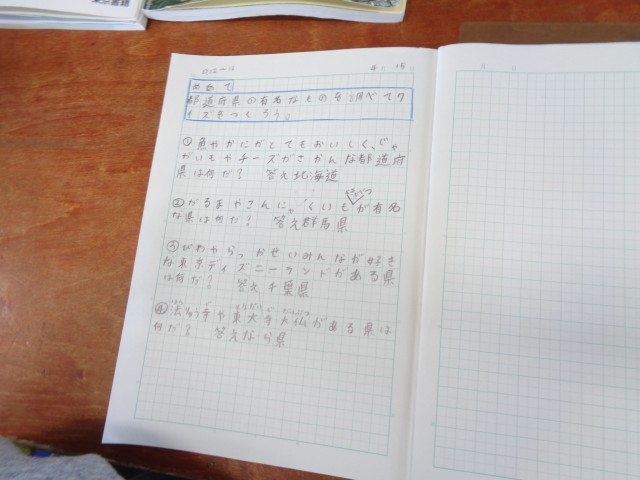 東京書籍
めあて
都道府県の有名なものを調べてク
イズをつくろう。
①魚やかにがとてもおいしく、じゃ
がいもやチーズがさかんな都道府
県は何か？ 答え北海道
②だるまやさんにゃくいもが有名
な県は何か？ 答え群馬県
③びわやらっかせいみんなが好き
な東京ディズニーランドがある県
は何か？ 答え千葉県
④法りゅう寺や東大寺大仏がある県は
何か？ 答えなら県